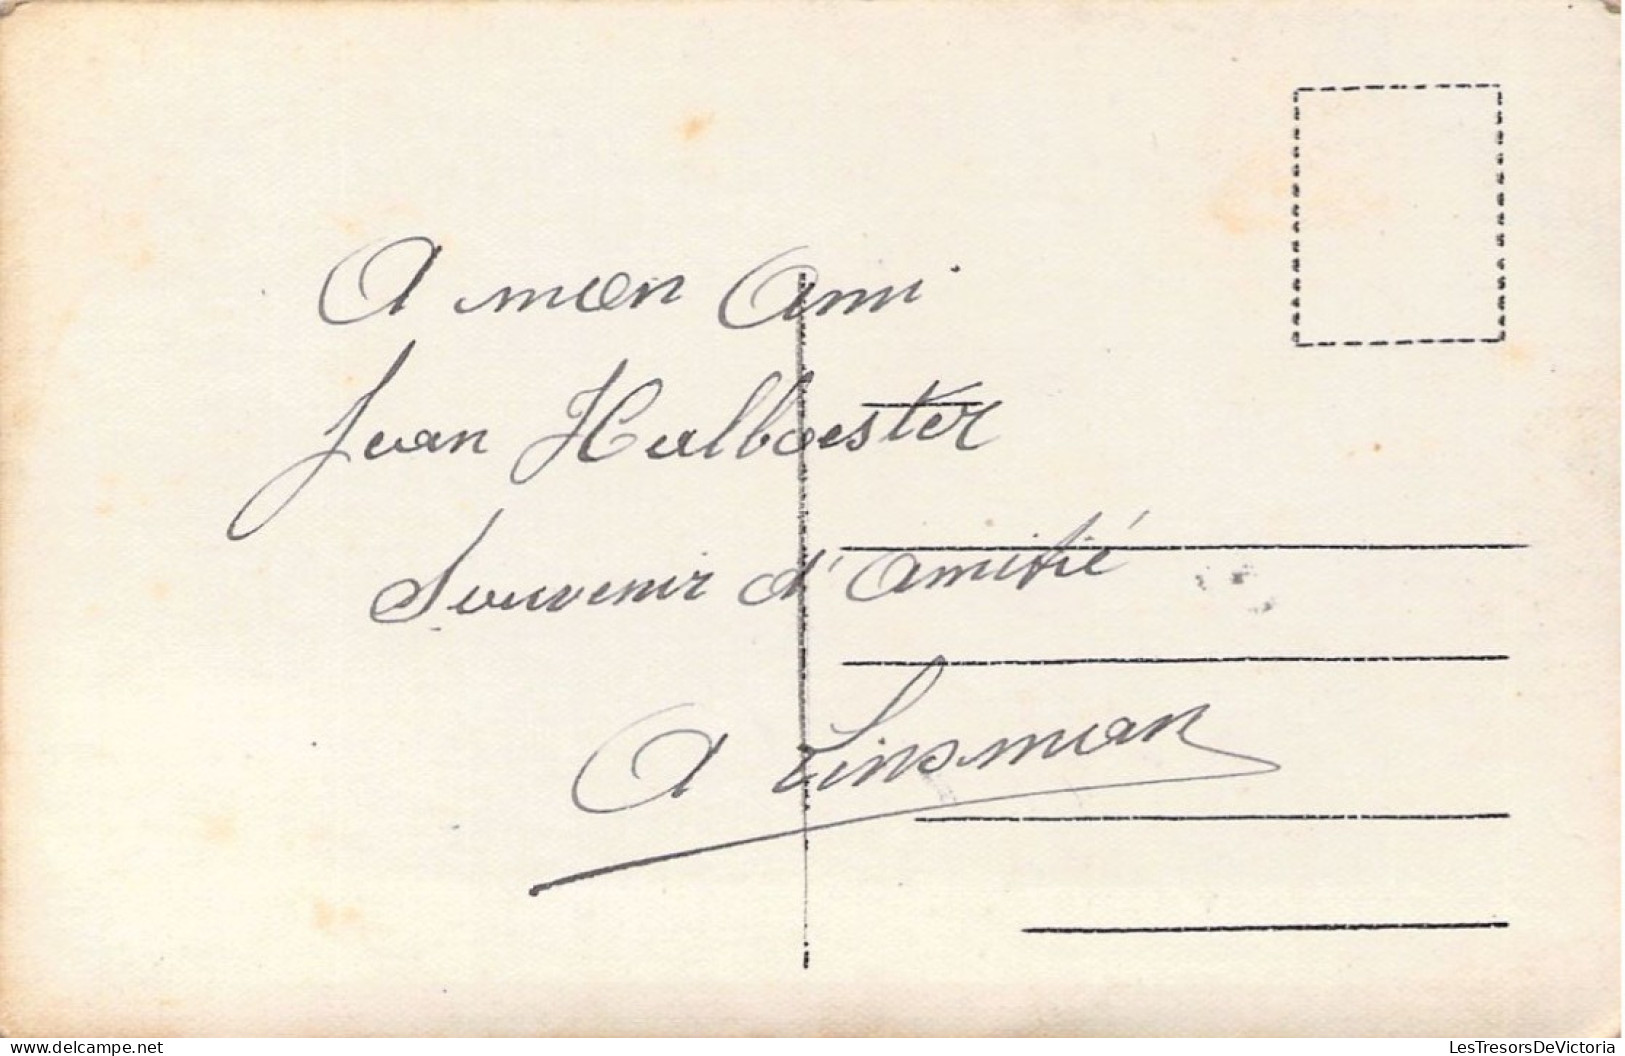 A mon Ami
Jean Halbaester
Souvenir d'amitié
A Linsman
LesTresorsDeVictoria